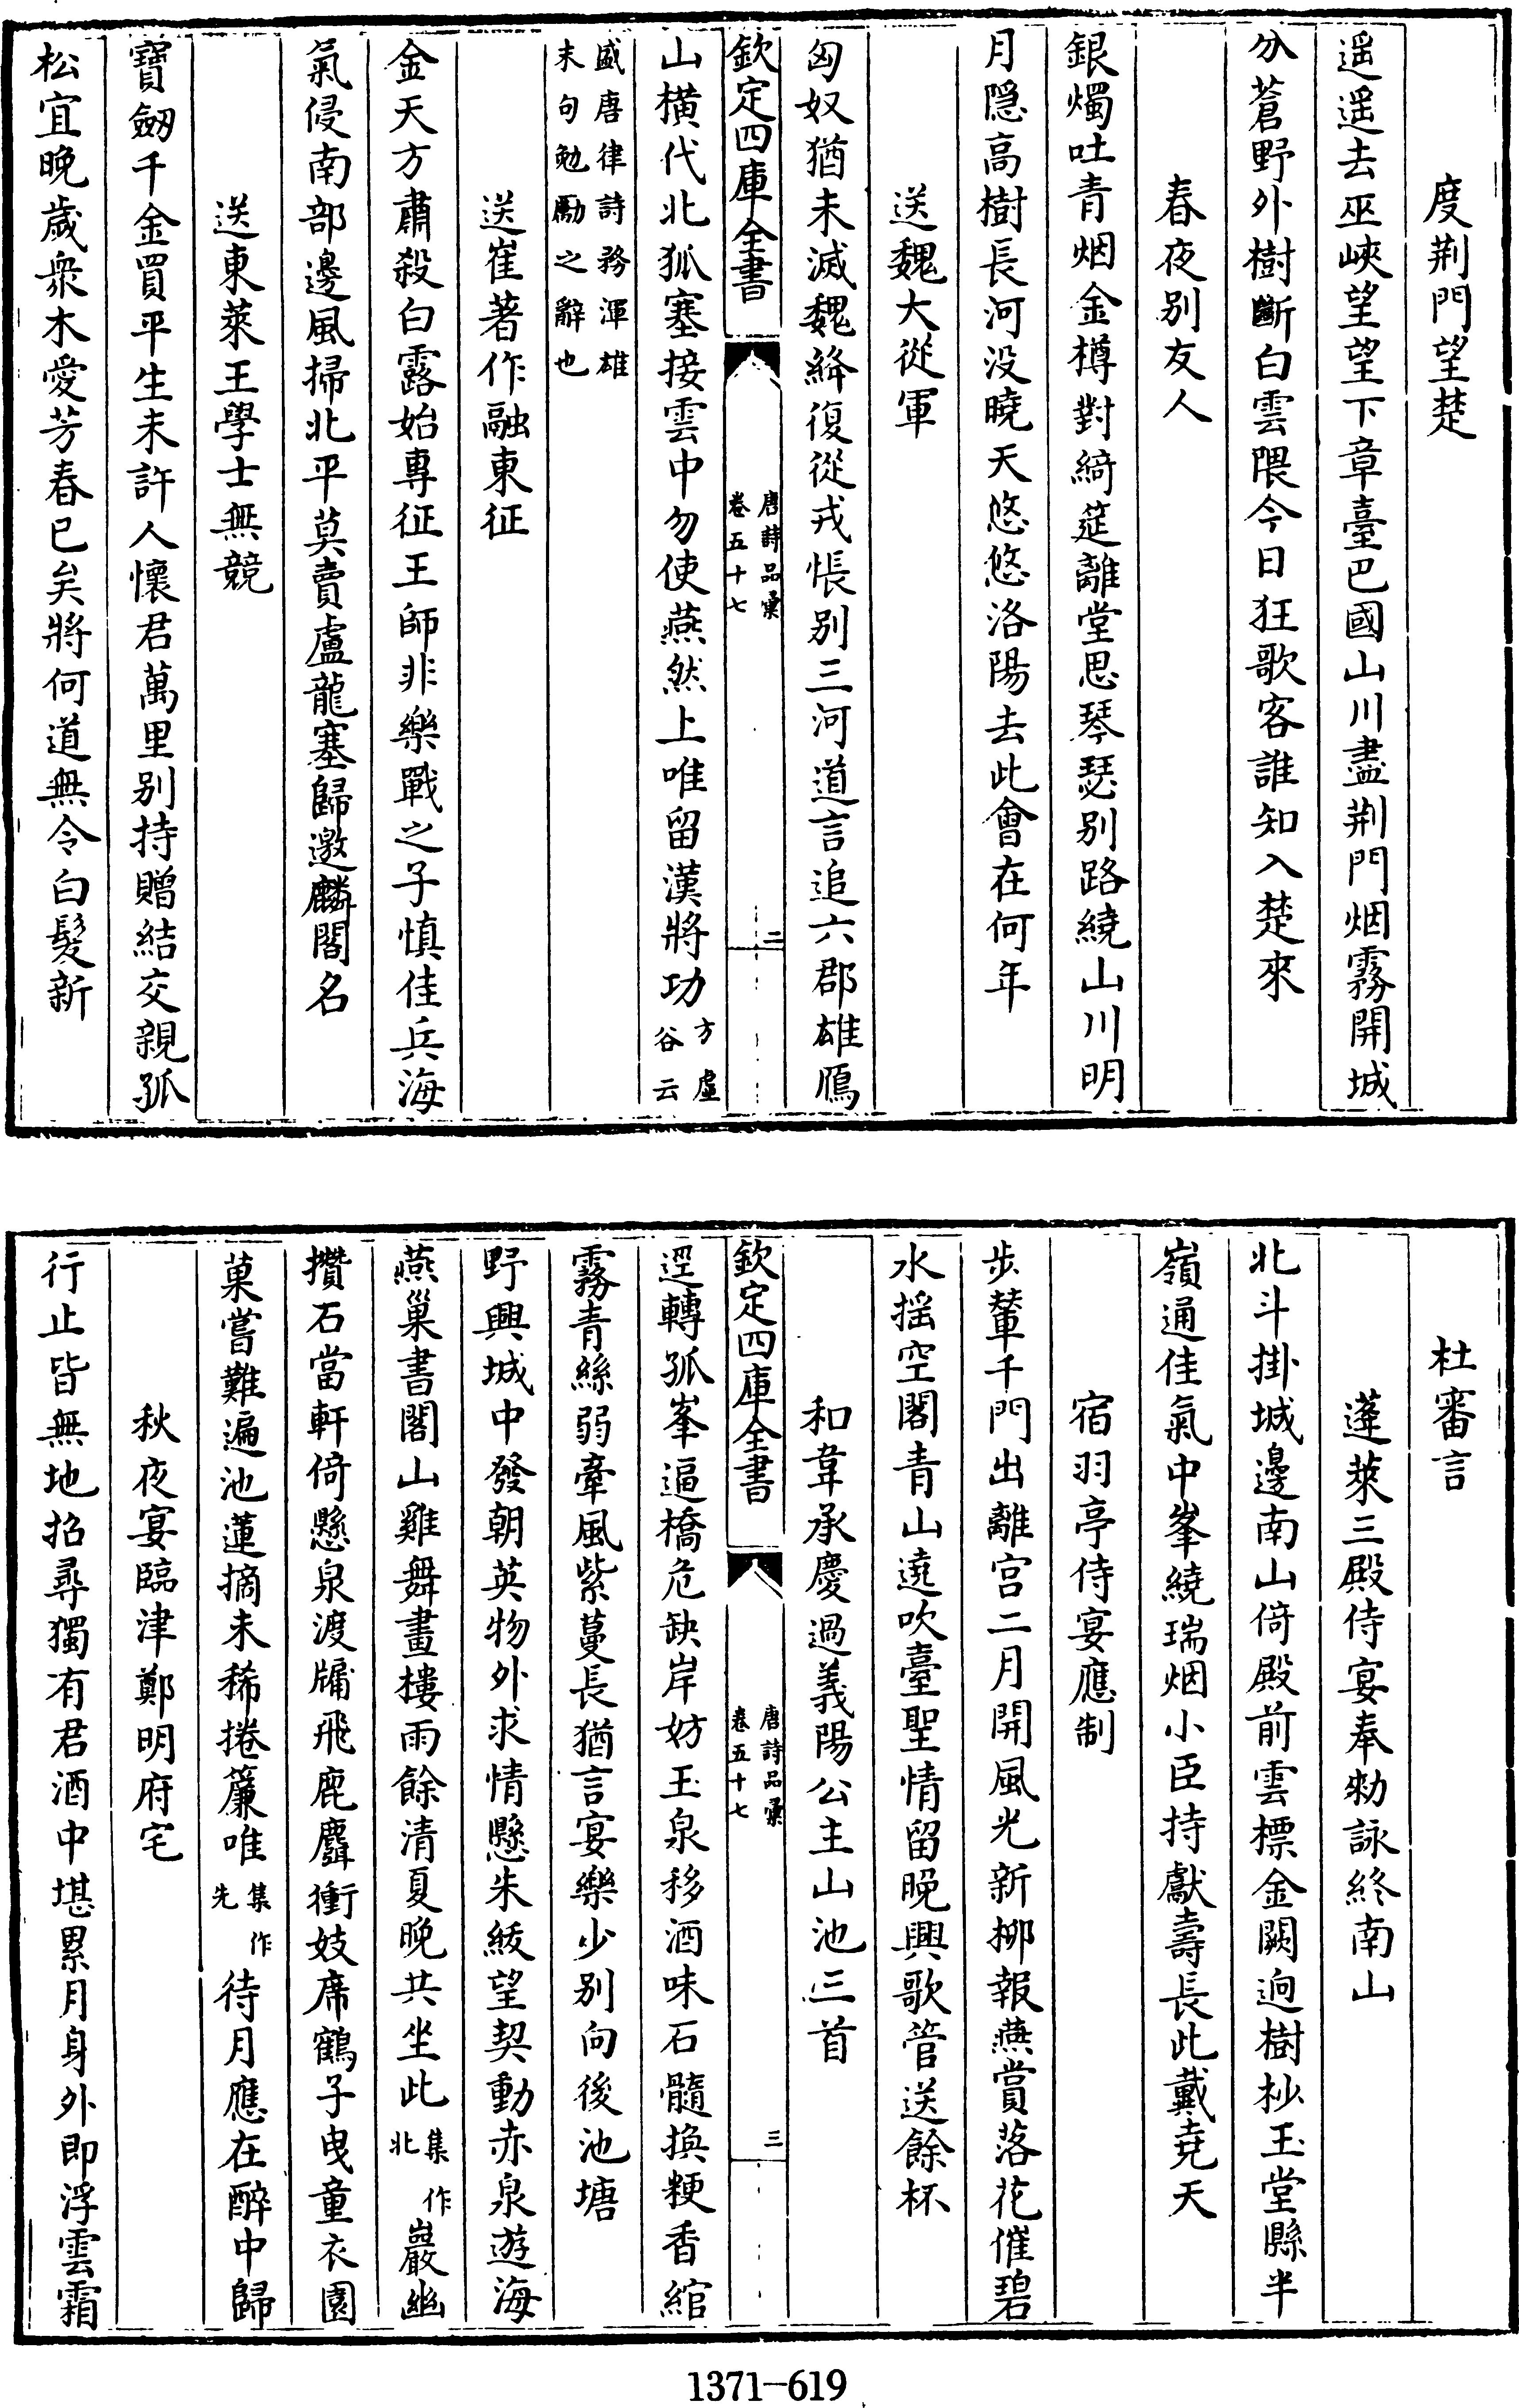 度荆門望楚
遥遥去巫峽望望下章臺巴國山川盡荆門烟霧開城
分蒼野外樹斷白雲隈今日狂歌客誰知入楚來
春夜别友人
銀燭吐青烟金樽對綺筵離堂思琴瑟别路繞山川明
月隱高樹長河没曉天悠悠洛陽去此會在何年
送魏大從軍
匈奴猶未滅魏絳復從戎悵别三河道言追六郡雄鴈
欽定四庫全書
唐詩品彙
卷五十七
二
山横代北狐塞接雲中勿使燕然上唯留漢將功方虚谷云
盛唐律詩務渾雄
末句勉勵之辭也
送崔著作融東征
金天方肅殺白露始專征王師非樂戰之子慎佳兵海
氣侵南部邊風掃北平莫賣盧龍塞歸邀麟閣名
送東萊王學士無競
寶劒千金買平生未許人懷君萬里别持贈結交親孤
松宜晚歲衆木愛芳春已矣將何道無令白髮新
杜審言
蓬萊三殿侍宴奉勑詠終南山
北斗掛城邊南山倚殿前雲標金闕迥樹杪玉堂縣半
嶺通佳氣中峯繞瑞烟小臣持獻壽長此戴堯天
宿羽亭侍宴應制
步輦千門出離宫二月開風光新柳報燕賞落花催碧
水摇空閣青山遶吹臺聖情留晚興歌管送餘杯
和韋承慶過義陽公主山池三首
欽定四庫全書
唐詩品彙
卷五十七
三
逕轉孤峯逼橋危缺岸妨玉泉移酒味石髓換粳香綰
霧青絲弱牽風紫蔓長猶言宴樂少别向後池塘
野興城中發朝英物外求情懸朱紱望契動赤泉遊海
燕巢書閣山雞舞畫樓雨餘清夏晚共坐此集作北巖幽
攢石當軒倚懸泉渡牖飛鹿麛衝妓席鶴子曳童衣園
菓嘗難遍池蓮摘未稀捲簾唯集作先待月應在醉中歸
秋夜宴臨津鄭明府宅
行止皆無地招尋獨有君酒中堪累月身外即浮雲霜
1371—619